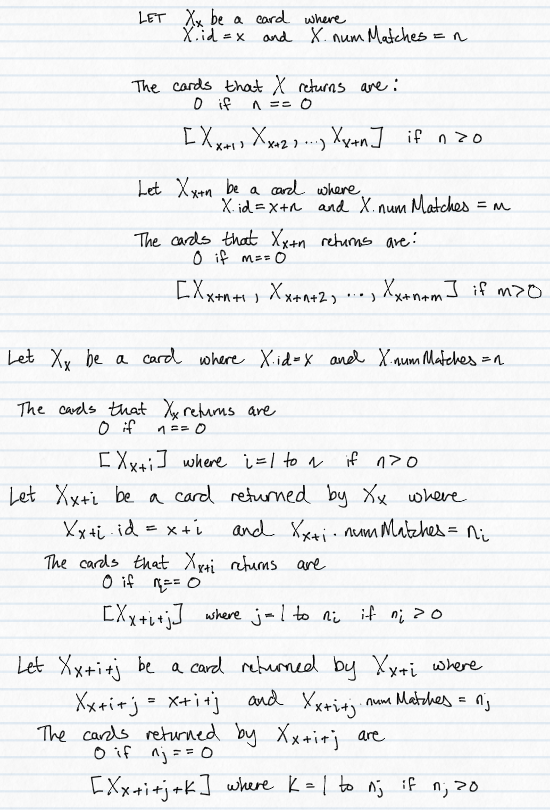 LET Xₓ be a card where
X.id = x and X.numMatches = n
The cards that X returns are:
0 if n == 0
[Xₓ₊₁, Xₓ₊₂, ..., Xₓ₊ₙ] if n > 0
Let Xₓ₊ₙ be a card where
X.id = x+n and X.numMatches = m
The cards that Xₓ₊ₙ returns are:
0 if m == 0
[Xₓ₊ₙ₊₁, Xₓ₊ₙ₊₂, ..., Xₓ₊ₙ₊ₘ] if m>0
Let Xₓ be a card where X.id=x and X.numMatches = n
The cards that Xₓ returns are
0 if n == 0
[Xₓ₊ᵢ] where i=1 to n if n>0
Let Xₓ₊ᵢ be a card returned by Xₓ where
Xₓ₊ᵢ.id = x+i and Xₓ₊ᵢ.numMatches = nᵢ
The cards that Xₓ₊ᵢ returns are
0 if nᵢ == 0
[Xₓ₊ᵢ₊ⱼ] where j=1 to nᵢ if nᵢ > 0
Let Xₓ₊ᵢ₊ⱼ be a card returned by Xₓ₊ᵢ where
Xₓ₊ᵢ₊ⱼ = x+i+j and Xₓ₊ᵢ₊ⱼ.numMatches = nⱼ
The cards returned by Xₓ₊ᵢ₊ⱼ are
0 if nⱼ == 0
[Xₓ₊ᵢ₊ⱼ₊ₖ] where K = 1 to nⱼ if nⱼ >0